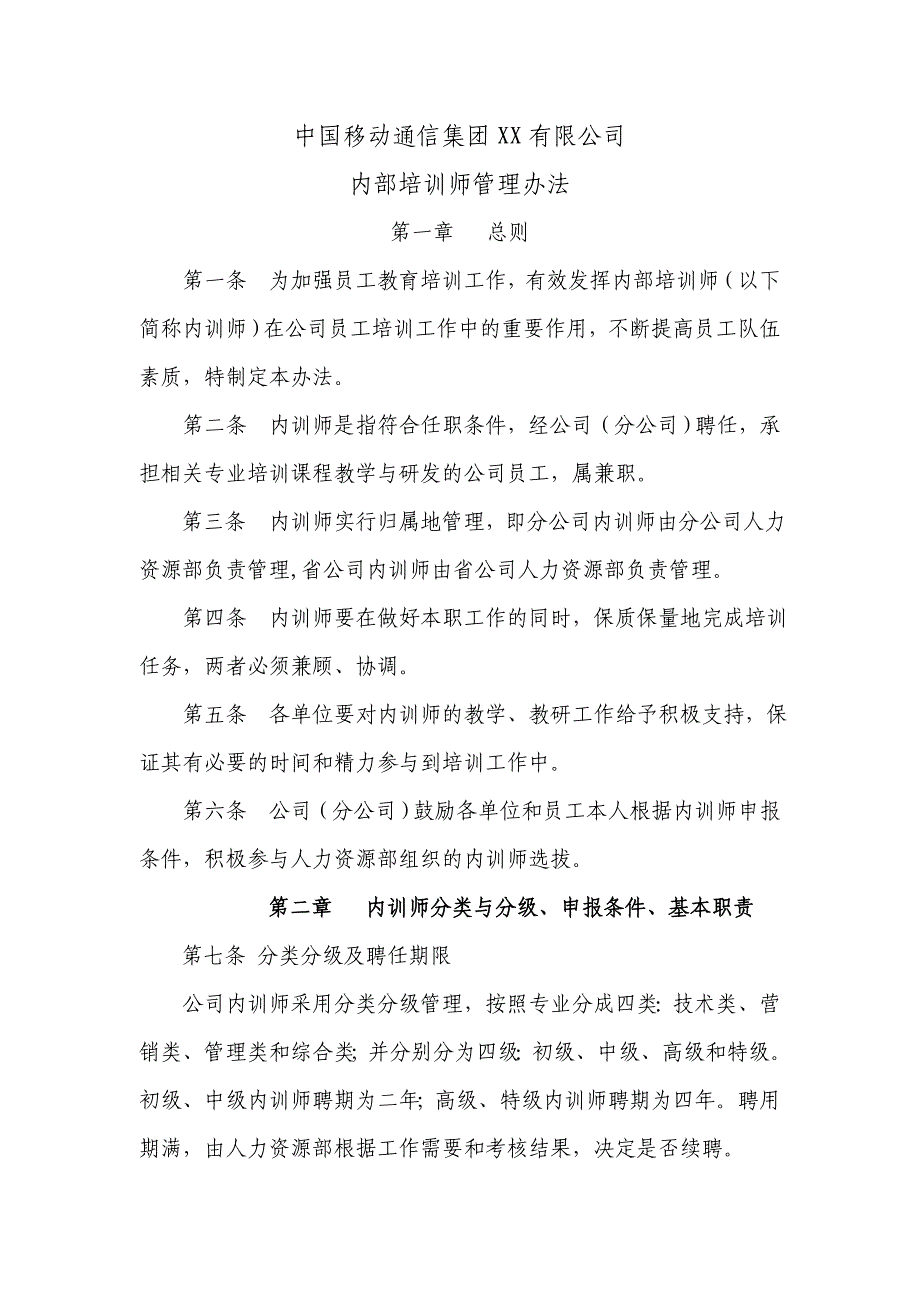 中国移动通信集团 XX 有限公司
内部培训师管理办法
第一章 总则
第一条 为加强员工教育培训工作，有效发挥内部培训师（以下
简称内训师）在公司员工培训工作中的重要作用，不断提高员工队伍
素质，特制定本办法。
第二条 内训师是指符合任职条件，经公司（分公司）聘任，承
担相关专业培训课程教学与研发的公司员工，属兼职。
第三条 内训师实行归属地管理，即分公司内训师由分公司人力
资源部负责管理,省公司内训师由省公司人力资源部负责管理。
第四条 内训师要在做好本职工作的同时，保质保量地完成培训
任务，两者必须兼顾、协调。
第五条 各单位要对内训师的教学、教研工作给予积极支持，保
证其有必要的时间和精力参与到培训工作中。
第六条 公司（分公司）鼓励各单位和员工本人根据内训师申报
条件，积极参与人力资源部组织的内训师选拔。
第二章 内训师分类与分级、申报条件、基本职责
第七条 分类分级及聘任期限
公司内训师采用分类分级管理，按照专业分成四类：技术类、营
销类、管理类和综合类；并分别分为四级：初级、中级、高级和特级。
初级、中级内训师聘期为二年；高级、特级内训师聘期为四年。聘用
期满，由人力资源部根据工作需要和考核结果，决定是否续聘。